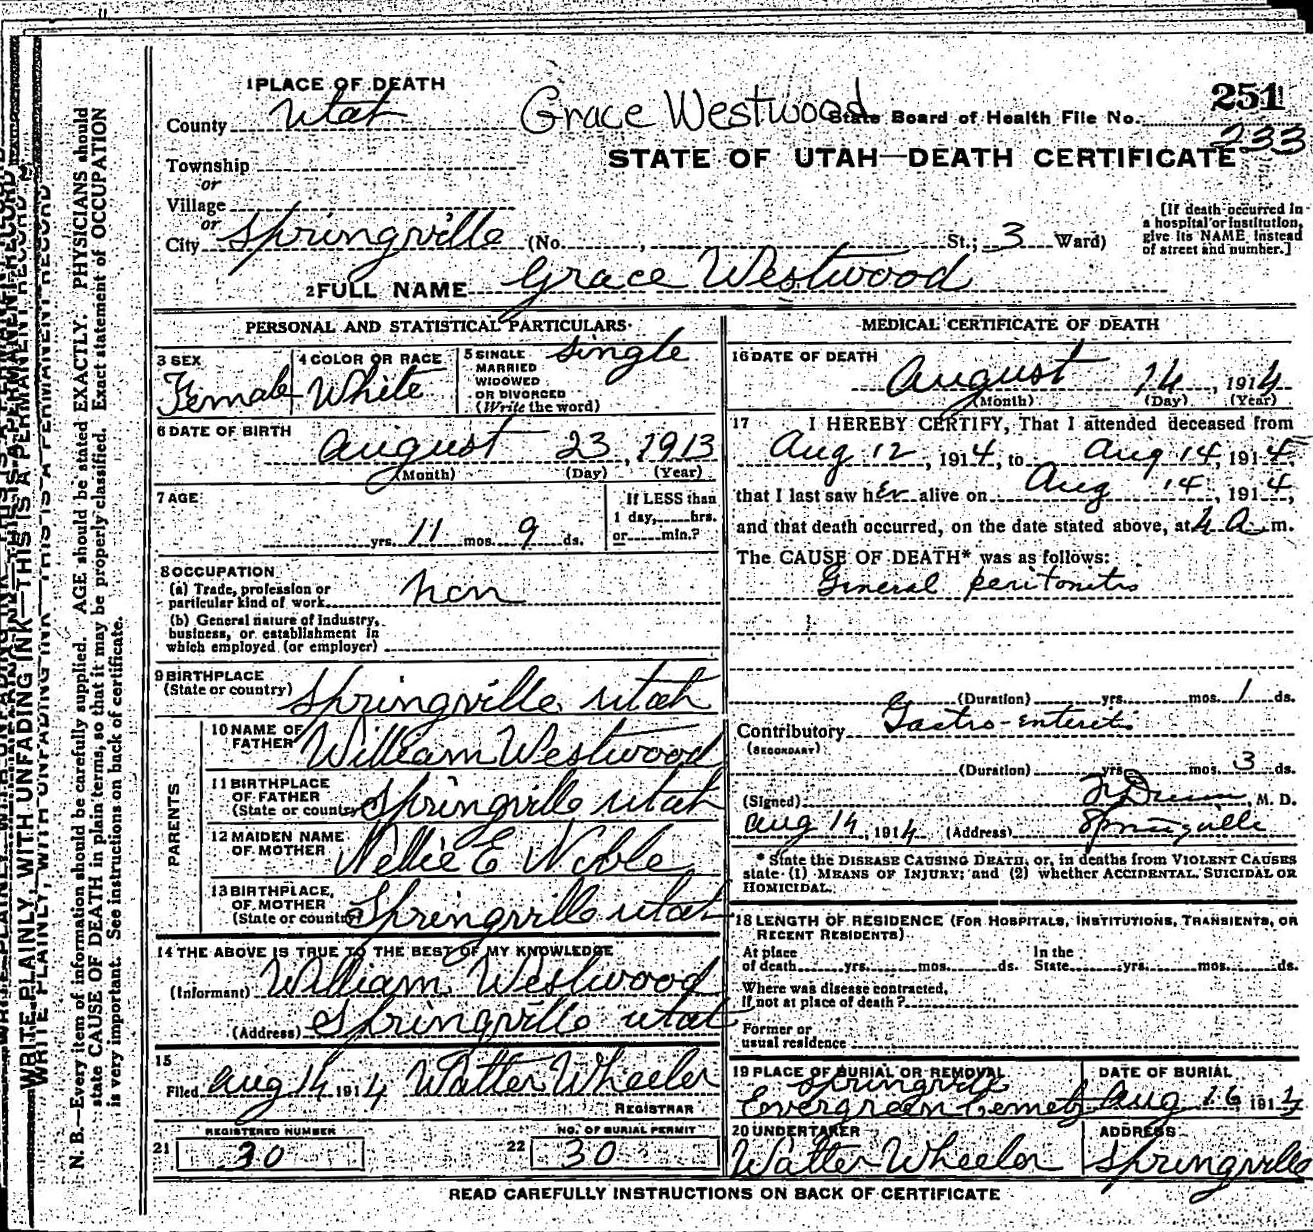 251
1 PLACE OF DEATH
Grace Westwood
State Board of Health File No. 233
County Utah
STATE OF UTAH—DEATH CERTIFICATE
Township
or
Village
or
City Springville (No. , St.; 3 Ward)
[If death occurred in
a hospital or institution,
give its NAME instead
of street and number.]
2 FULL NAME Grace Westwood
PERSONAL AND STATISTICAL PARTICULARS
3 SEX
Female
4 COLOR OR RACE
White
5 SINGLE
MARRIED
WIDOWED
OR DIVORCED
(Write the word)
Single
6 DATE OF BIRTH
August 23, 1913
(Month) (Day) (Year)
7 AGE
yrs. 11 mos. 9 ds.
If LESS than
1 day, hrs.
or min.?
8 OCCUPATION
(a) Trade, profession or
particular kind of work non
(b) General nature of industry,
business, or establishment in
which employed (or employer)
9 BIRTHPLACE
(State or country) Springville Utah
PARENTS
10 NAME OF
FATHER William Westwood
11 BIRTHPLACE
OF FATHER
(State or country) Springville Utah
12 MAIDEN NAME
OF MOTHER Nellie E Noble
13 BIRTHPLACE
OF MOTHER
(State or country) Springville Utah
14 THE ABOVE IS TRUE TO THE BEST OF MY KNOWLEDGE
(Informant) William Westwood
(Address) Springville Utah
15
Filed Aug 14 1914 Walter Wheeler
REGISTRAR
21 REGISTERED NUMBER
30
22 NO. OF BURIAL PERMIT
30
MEDICAL CERTIFICATE OF DEATH
16 DATE OF DEATH
August 14, 1914
(Month) (Day) (Year)
17 I HEREBY CERTIFY, That I attended deceased from
Aug 12, 1914, to Aug 14, 1914,
that I last saw her alive on Aug 14, 1914,
and that death occurred, on the date stated above, at 4 a.m.
The CAUSE OF DEATH* was as follows:
General peritonitis
(Duration) yrs. mos. 1 ds.
Contributory Gastro-enteritis
(SECONDARY)
(Duration) yrs. mos. 3 ds.
(Signed) M. D.
Aug 14, 1914 (Address) Springville
* State the DISEASE CAUSING DEATH, or, in deaths from VIOLENT CAUSES
state (1) MEANS OF INJURY; and (2) whether ACCIDENTAL, SUICIDAL OR
HOMICIDAL.
18 LENGTH OF RESIDENCE (FOR HOSPITALS, INSTITUTIONS, TRANSIENTS, OR
RECENT RESIDENTS)
At place
of death yrs. mos. ds.
In the
State yrs. mos. ds.
Where was disease contracted,
if not at place of death?
Former or
usual residence
19 PLACE OF BURIAL OR REMOVAL
Springville
Evergreen Cemety
DATE OF BURIAL
Aug 16 1914
20 UNDERTAKER
Walter Wheeler
ADDRESS
Springville
READ CAREFULLY INSTRUCTIONS ON BACK OF CERTIFICATE
WRITE PLAINLY, WITH UNFADING INK—THIS IS A PERMANENT RECORD
WRITE PLAINLY, WITH UNFADING INK—THIS IS A PERMANENT RECORD
N. B.—Every item of information should be carefully supplied. AGE should be stated EXACTLY. PHYSICIANS should
state CAUSE OF DEATH in plain terms, so that it may be properly classified. Exact statement of OCCUPATION
is very important. See instructions on back of certificate.